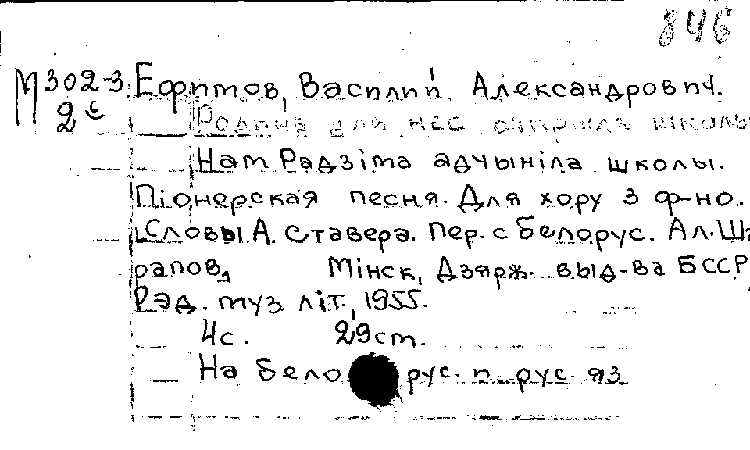 846
М302-3 Ефимов, Василий Александрович.
2с Родина для нас открыла школы
Нам Радзіма адчыніла школы.
Піонерская песня. Для хору з ф-но.
Словы А. Ставера. Пер. с белорус. Ал. Ша
рапов, Мінск, Дзярж. выд-ва БССР,
Рэд. муз. літ., 1955.
4с. 29 cm.
На бело рус. и рус. яз